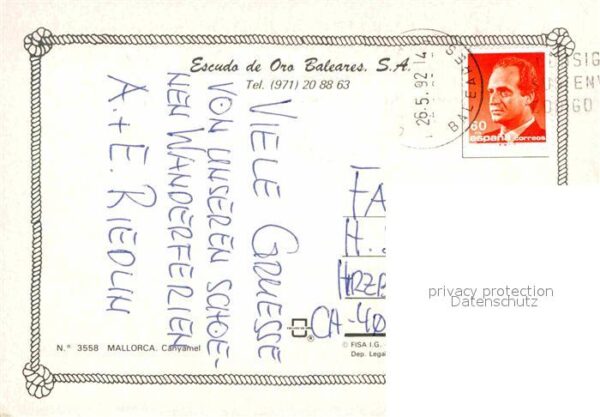 Escudo de Oro Baleares. S.A.
Tel. (971) 20 88 63
VIELE GRUESSE
VON UNSEREN SCHOE-
NEN WANDERFERIEN
A. + E. RIEDLIN
26.5.92 14
BALEAR
SIG
ENV
60
españa correos
FA
H.
CH-40
privacy protection
Datenschutz
N.º 3558 MALLORCA. Canyamel
© FISA I.G.
Dep. Legal